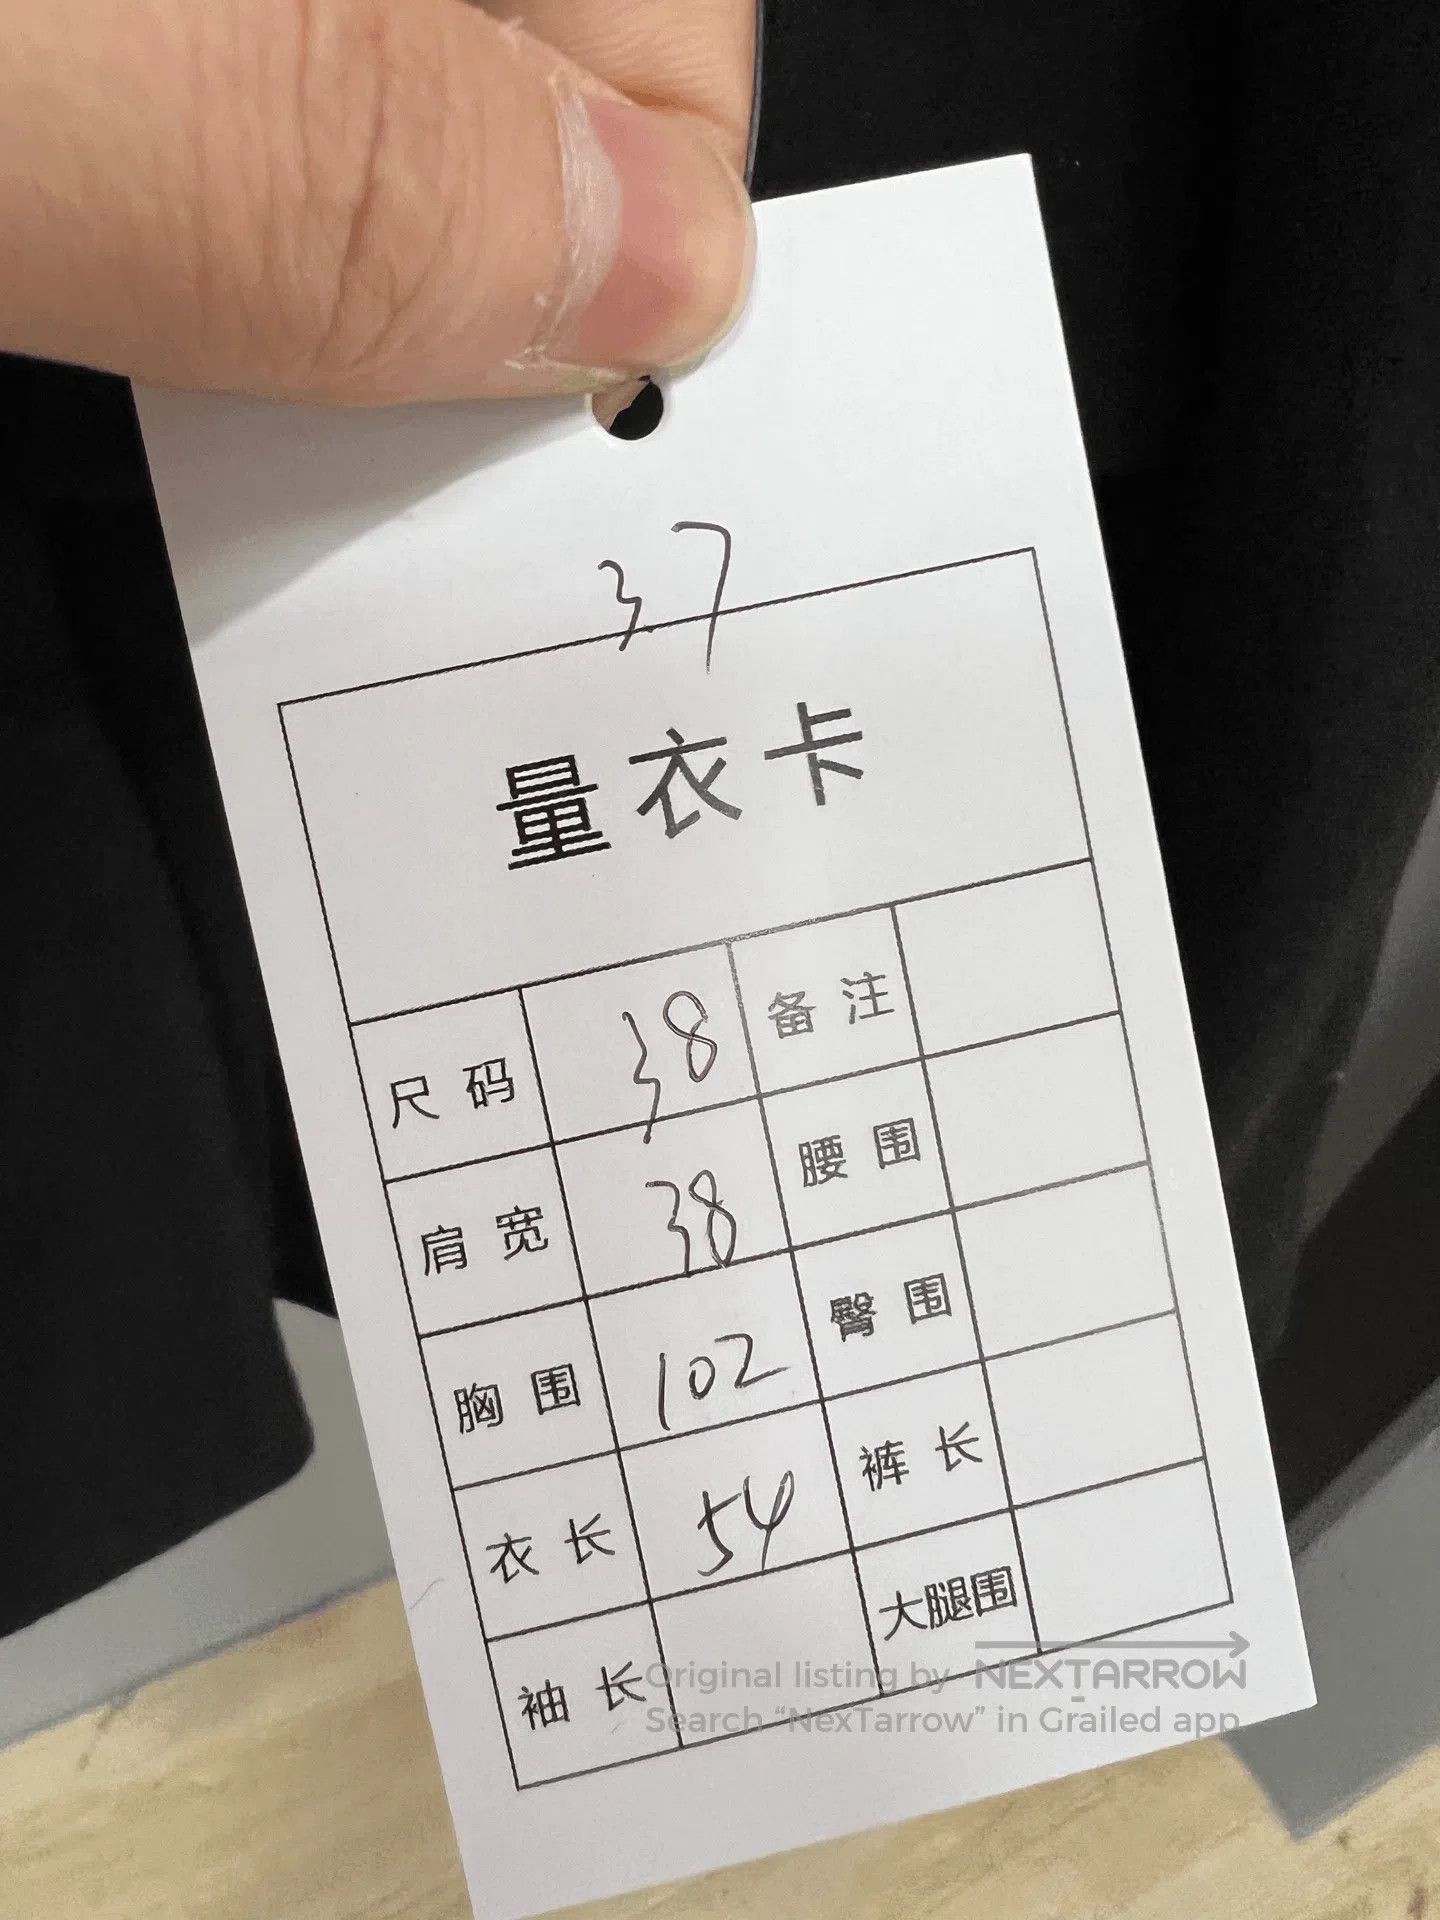 37
量衣卡
尺码 38 备注
肩宽 38 腰围
胸围 102 臀围
衣长 54 裤长
袖长 大腿围
Original listing by NEXTARROW
Search “NexTarrow” in Grailed app